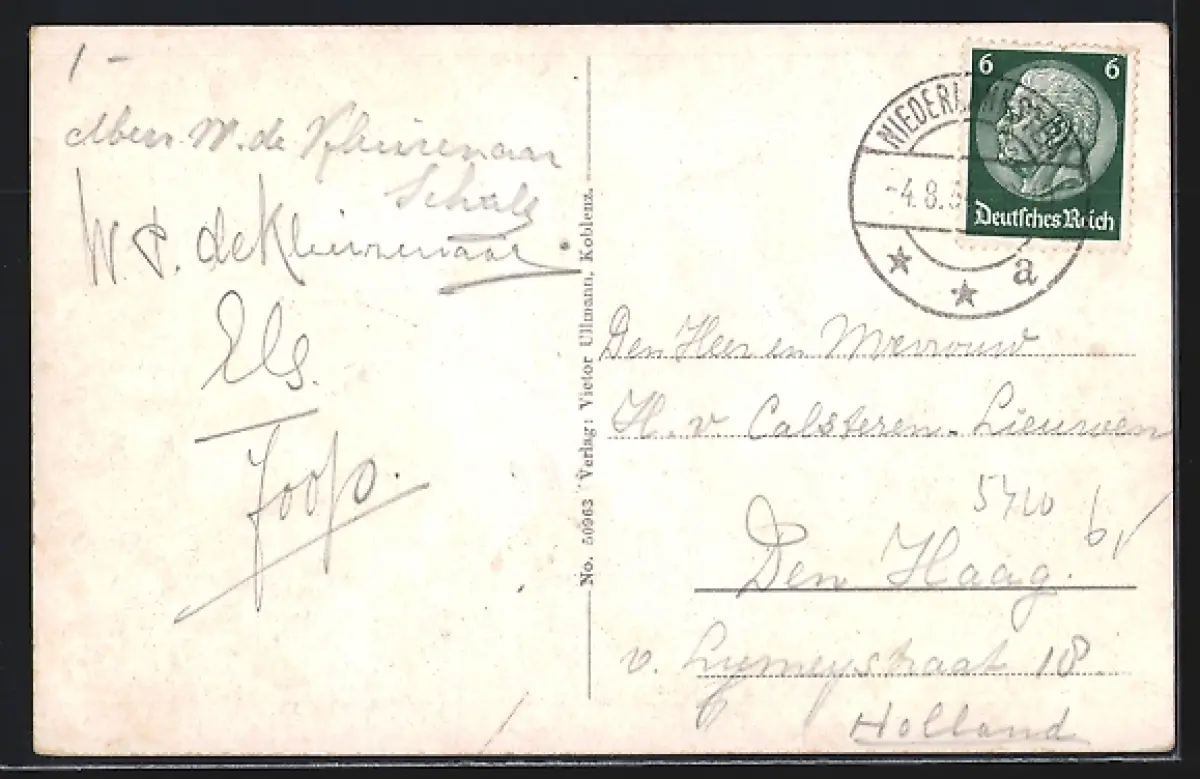 1 -
M. de Kleuvenaar
Schalg
W. P. de Kleuvenaar.
Els.
Joop.
No. 50963 Verlag: Victor Ullmann, Koblenz.
6 6
Deutsches Reich
-4.8.3
a
Den Heer en Mevrouw
H. v. Calsteren-Lieuwen
5410 6,
Den Haag.
v. Lumeystraat 18.
Holland